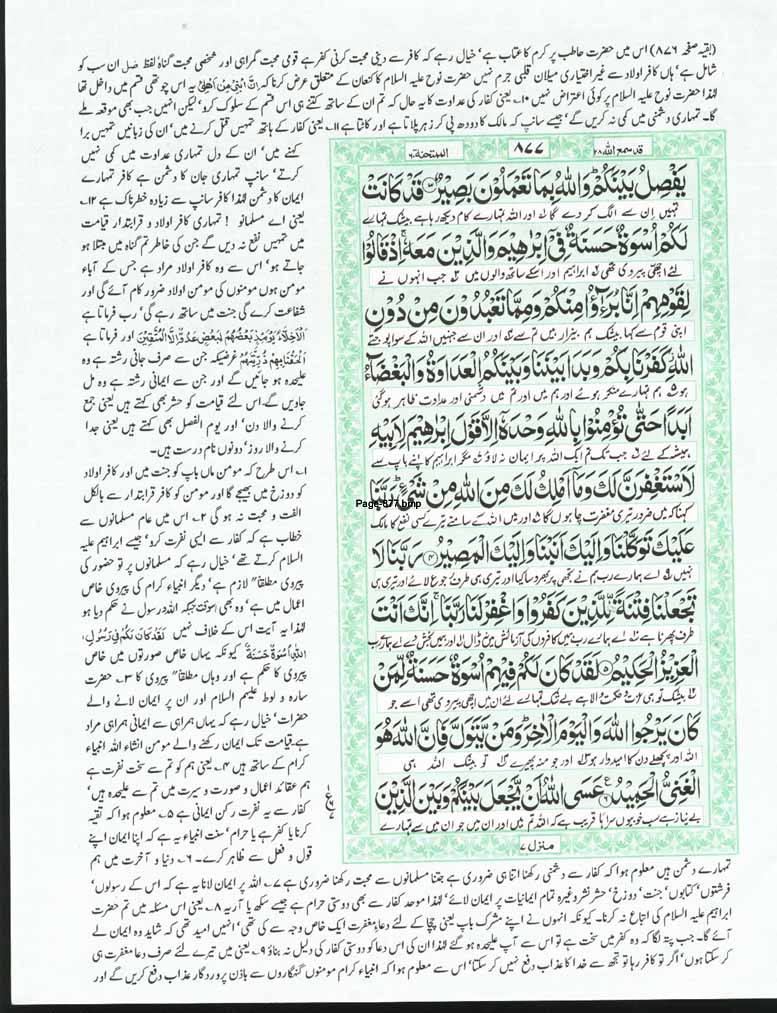 (بقیہ صفحہ ۸۷۶) اس میں حضرت حاطب پر کرم کا عتاب ہے' خیال رہے کہ کافر سے دینی محبت کرنی کفر ہے قومی محبت گمراہی اور شخصی محبت گناہ لفظ ضل ان سب کو
شامل ہے' ہاں کافر اولاد سے غیر اختیاری میلان قلبی جرم نہیں حضرت نوح علیہ السلام کا کنعان کے متعلق عرض کرنا کہ اِنَّ ابْنِیْ مِنْ اَهْلِیْ یہ اس چوتھی قسم میں داخل تھا
لہٰذا حضرت نوح علیہ السلام پر کوئی اعتراض نہیں ۱۰۔ یعنی کفار کی عداوت کا یہ حال کہ تم ان کے ساتھ کتنے ہی اس قسم کے سلوک کرو' لیکن انہیں جب بھی موقعہ ملے
گا۔ تمہاری دشمنی میں کمی نہ کریں گے' جیسے سانپ کہ مالک کا دودھ پی کر زہر پلاتا ہے اور کاٹتا ہے ۱۱۔ یعنی کفار کے ہاتھ تمہیں قتل کرنے میں' ان کی زبانیں تمہیں برا
قد سمع الله ۲۸
۸۷۷
الممتحنة ۶۰
يَفْصِلُ بَيْنَكُمْ وَاللّٰهُ بِمَا تَعْمَلُوْنَ بَصِيْرٌ ۳ قَدْ كَانَتْ
تمہیں ان سے الگ کر دے گا اور اللہ تمہارے کام دیکھ رہا ہے بیشک تمہارے
لَكُمْ اُسْوَةٌ حَسَنَةٌ فِيْ اِبْرٰهِيْمَ وَالَّذِيْنَ مَعَهٗ اِذْ قَالُوْا
لئے اچھی پیروی تھی ابراہیم اور اسکے ساتھ والوں میں جب انہوں نے
لِقَوْمِهِمْ اِنَّا بُرَءٰٓؤُا مِنْكُمْ وَمِمَّا تَعْبُدُوْنَ مِنْ دُوْنِ
اپنی قوم سے کہا بیشک ہم بیزار ہیں تم سے اور ان سے جنہیں اللہ کے سوا پوجتے
اللّٰهِ كَفَرْنَا بِكُمْ وَبَدَا بَيْنَنَا وَبَيْنَكُمُ الْعَدَاوَةُ وَالْبَغْضَآءُ
ہو ہم تمہارے منکر ہوئے اور ہم میں اور تم میں دشمنی اور عداوت ظاہر ہو گئی
اَبَدًا حَتّٰى تُؤْمِنُوْا بِاللّٰهِ وَحْدَهٗٓ اِلَّا قَوْلَ اِبْرٰهِيْمَ لِاَبِيْهِ
ہمیشہ کے لئے جب تک تم ایک اللہ پر ایمان نہ لاؤ مگر ابراہیم کا اپنے باپ سے
لَاَسْتَغْفِرَنَّ لَكَ وَمَآ اَمْلِكُ لَكَ مِنَ اللّٰهِ مِنْ شَيْءٍ رَبَّنَا
کہنا کہ میں ضرور تیری مغفرت چاہوں گا اور میں اللہ کے سامنے تیرے کسی نفع کا مالک
عَلَيْكَ تَوَكَّلْنَا وَاِلَيْكَ اَنَبْنَا وَاِلَيْكَ الْمَصِيْرُ ۴ رَبَّنَا لَا
نہیں اے ہمارے رب ہم نے تجھی پر بھروسا کیا اور تیری ہی طرف رجوع لائے اور تیری ہی
تَجْعَلْنَا فِتْنَةً لِّلَّذِيْنَ كَفَرُوْا وَاغْفِرْ لَنَا رَبَّنَا اِنَّكَ اَنْتَ
طرف پھرنا ہے اے ہمارے رب ہمیں کافروں کی آزمائش میں نہ ڈال اور ہمیں بخش دے اے ہمارے رب
الْعَزِيْزُ الْحَكِيْمُ ۵ لَقَدْ كَانَ لَكُمْ فِيْهِمْ اُسْوَةٌ حَسَنَةٌ لِّمَنْ
بیشک تو ہی عزت و حکمت والا ہے بے شک تمہارے لئے ان میں اچھی پیروی تھی اسے جو
كَانَ يَرْجُوا اللّٰهَ وَالْيَوْمَ الْاٰخِرَ وَمَنْ يَّتَوَلَّ فَاِنَّ اللّٰهَ هُوَ
اللہ اور پچھلے دن کا امیدوار ہو اور جو منہ پھیرے تو بیشک اللہ ہی
الْغَنِيُّ الْحَمِيْدُ ۶ عَسَى اللّٰهُ اَنْ يَّجْعَلَ بَيْنَكُمْ وَبَيْنَ الَّذِيْنَ
بے نیاز ہے سب خوبیوں سراہا قریب ہے کہ اللہ تم میں اور ان میں جو ان میں سے تمہارے
منزل ۷
Page-877.bmp
کہنے میں' ان کے دل تمہاری عداوت میں کمی نہیں
کرتے' سانپ تمہاری جان کا دشمن ہے کافر تمہارے
ایمان کا دشمن لہٰذا کافر سانپ سے زیادہ خطرناک ہے ۱۲۔
یعنی اے مسلمانو ! تمہاری کافر اولاد و قرابتدار قیامت
میں تمہیں نفع نہ دیں گے جن کی خاطر تم گناہ میں مبتلا ہو
جاتے ہو' اس سے وہ کافر اولاد مراد ہے جس کے آباء
مومن ہوں مومنوں کی مومن اولاد ضرور کام آئے گی اور
شفاعت کرے گی جنت میں ساتھ رہے گی' رب فرماتا ہے
اَلْاَخِلَّآءُ يَوْمَئِذٍ بَعْضُهُمْ لِبَعْضٍ عَدُوٌّ اِلَّا الْمُتَّقِيْنَ اور فرماتا ہے
اَلْحَقْنَا بِهِمْ ذُرِّيَّتَهُمْ غرضیکہ جن سے صرف جانی رشتہ ہے وہ
علیحدہ ہو جائیں گے اور جن سے ایمانی رشتہ ہے وہ مل
جاویں گے۔ اس لئے قیامت کو حشر بھی کہتے ہیں یعنی جمع
کرنے والا دن' اور یوم الفصل بھی کہتے ہیں یعنی جدا
کرنے والا روز' دونوں نام درست ہیں۔
۱۔ اس طرح کہ مومن ماں باپ کو جنت میں اور کافر اولاد
کو دوزخ میں بھیجے گا اور مومن کو کافر قرابتدار سے بالکل
الفت و محبت نہ ہو گی ۲۔ اس میں عام مسلمانوں سے
خطاب ہے کہ کفار سے ایسی نفرت کرو' جیسے ابراہیم علیہ
السلام کرتے تھے' خیال رہے کہ مسلمانوں پر تو حضور کی
پیروی مطلقاً" لازم ہے' دیگر انبیاء کرام کی پیروی خاص
اعمال میں ہے' وہ بھی اسوقت جبکہ اللہ رسول نے حکم دیا ہو
لہٰذا یہ آیت اس کے خلاف نہیں لَقَدْ كَانَ لَكُمْ فِيْ رَسُوْلِ
اللّٰهِ اُسْوَةٌ حَسَنَةٌ کیونکہ یہاں خاص صورتوں میں خاص
پیروی کا حکم ہے اور وہاں مطلقاً" پیروی کا ۳۔ حضرت
سارہ و لوط علیہم السلام اور ان پر ایمان لانے والے
حضرات' خیال رہے کہ یہاں ہمراہی سے ایمانی ہمراہی مراد
ہے قیامت تک ایمان رکھنے والے مومن انشاء اللہ انبیاء
کرام کے ساتھ ہیں ۴۔ یعنی ہم کو تم سے سخت نفرت ہے
ہم عقائد اعمال و صورت و سیرت میں تم سے علیحدہ ہیں'
کفار سے یہ نفرت رکن ایمانی ہے ۵۔ معلوم ہوا کہ تقیہ
کرنا یا کفر ہے یا حرام' سنت انبیاء یہ ہے کہ اپنا ایمان اپنے
قول و فعل سے ظاہر کرے۔ ۶۔ دنیا و آخرت میں ہم
تمہارے دشمن ہیں معلوم ہوا کہ کفار سے دشمنی رکھنا اتنا ہی ضروری ہے جتنا مسلمانوں سے محبت رکھنا ضروری ہے ۷۔ اللہ پر ایمان لانا یہ ہے کہ اس کے رسولوں'
فرشتوں' کتابوں' جنت' دوزخ' حشر نشر وغیرہ تمام ایمانیات پر ایمان لائے' لہٰذا موحد کفار سے بھی دوستی حرام ہے جیسے سکھ یا آریہ ۸۔ یعنی اس مسئلہ میں تم حضرت
ابراہیم علیہ السلام کی اتباع نہ کرنا۔ کیونکہ انہوں نے اپنے مشرک باپ یعنی چچا کے لئے دعاء مغفرت ایک خاص وجہ سے کی تھی' انہیں امید تھی کہ شاید وہ ایمان لے
آئے گا۔ جب پتہ لگا کہ وہ کفر میں سخت ہے تو اس سے آپ علیحدہ ہو گئے لہٰذا ان کی اس دعا کو دوستی کفار کی دلیل نہ بناؤ ۹۔ یعنی میں تیرے لئے صرف دعا مغفرت ہی
کر سکتا ہوں' اگر تو کافر رہا تو تجھ سے خدا کا عذاب دفع نہیں کر سکتا' اس سے معلوم ہوا کہ انبیاء کرام مومنوں گنہگاروں سے باذن پروردگار عذاب دفع کریں گے اور